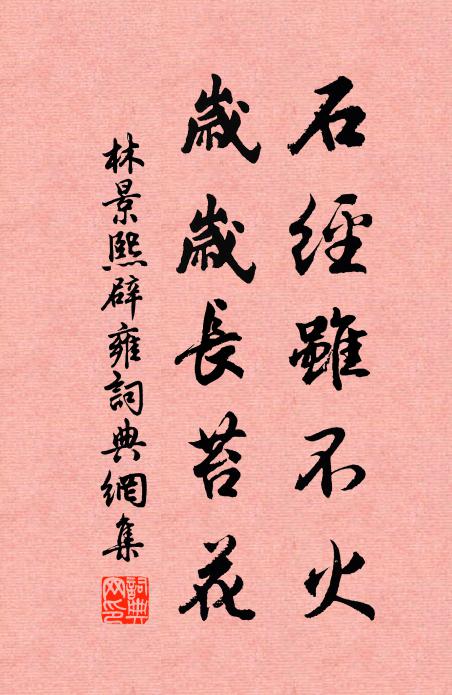 石經雖不火
歲歲長苔花
林景熙辟雍詞典網集
詞典網印